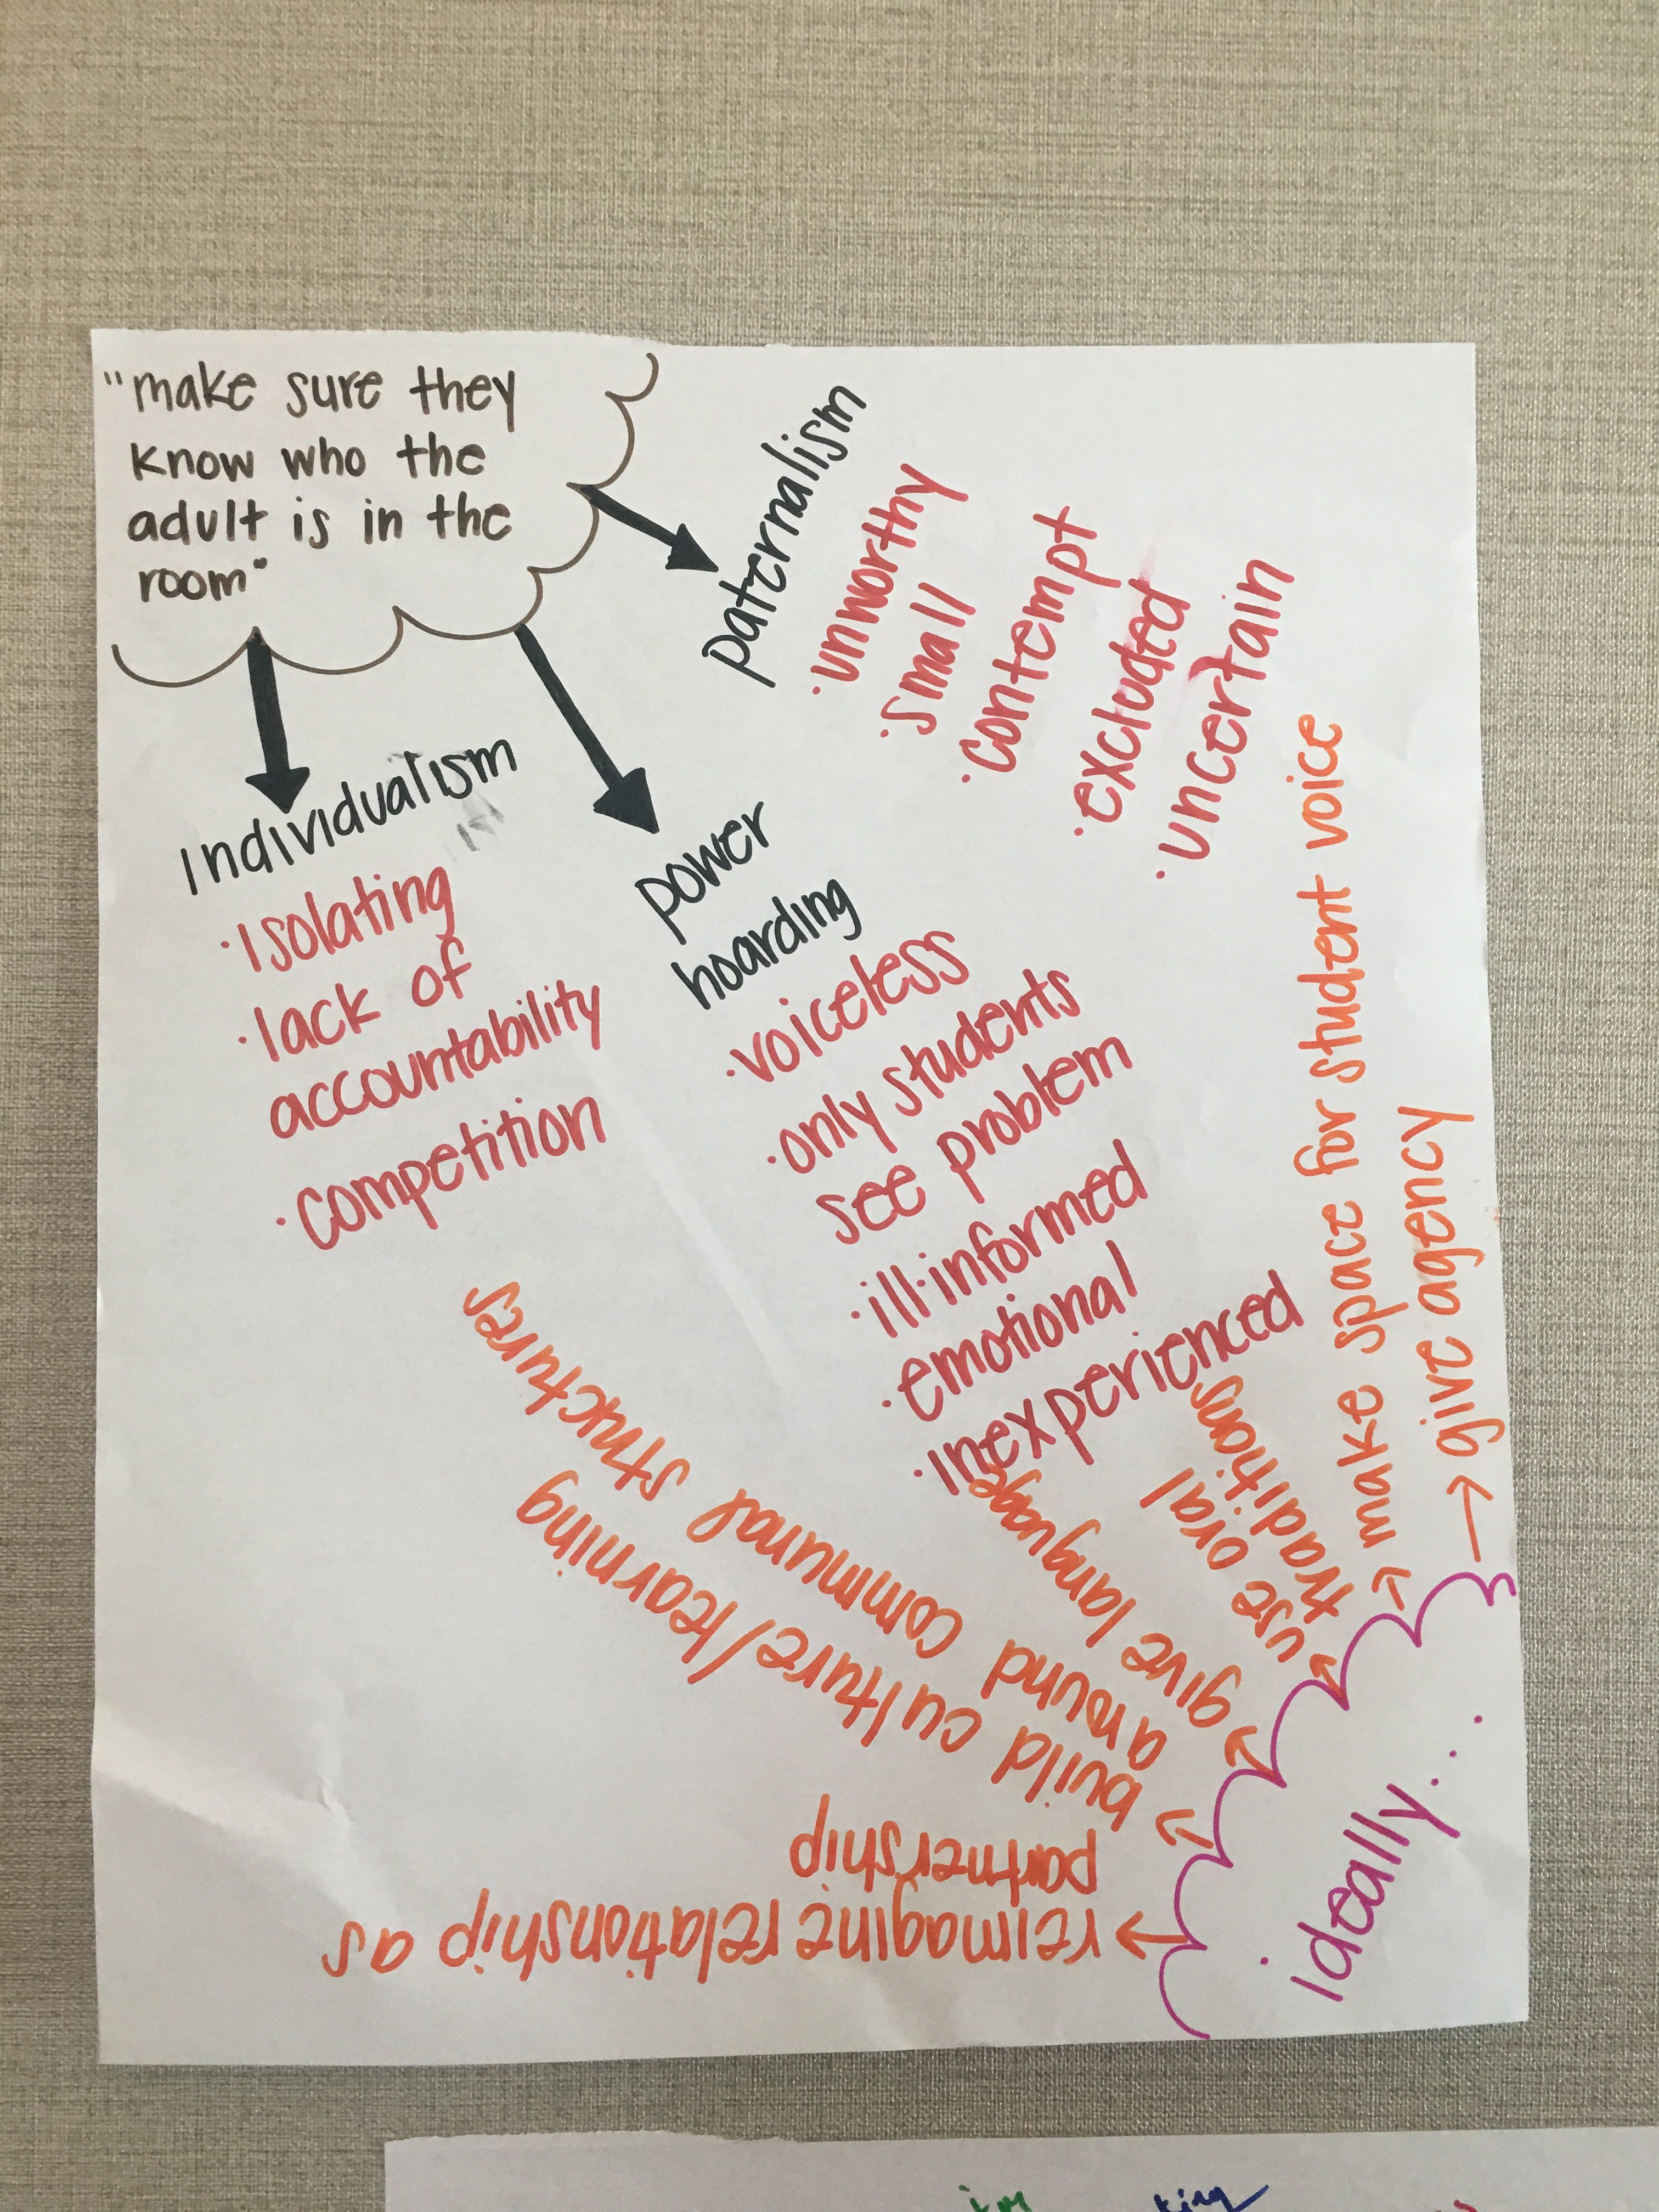 "make sure they
know who the
adult is in the
room"
Individualism
·isolating
·lack of
accountability
·competition
power
hoarding
·voiceless
·only students
see problem
·ill-informed
·emotional
·inexperienced
paternalism
·unworthy
·small
·contempt
·excluded
·uncertain
ideally...
→ reimagine relationship as
partnership
→ build culture/learning
around communal structures
→ give language
→ use oral
traditions
→ make space for student voice
→ give agency
king